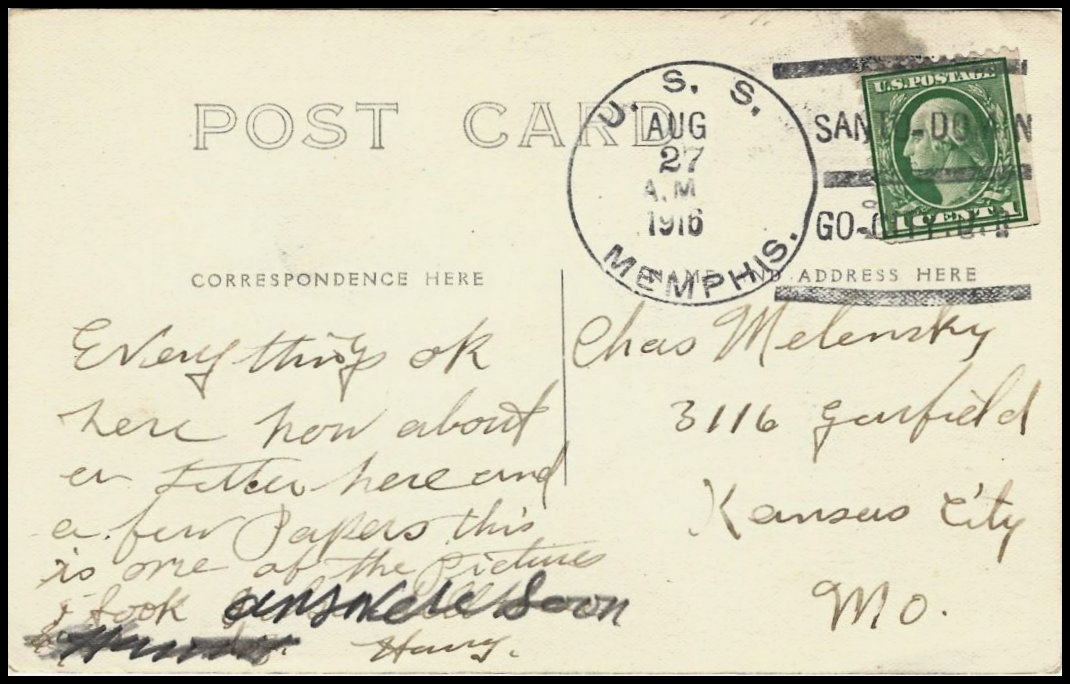 POST CARD
U. S. S.
AUG
27
A.M
1916
MEMPHIS.
SANTO-DOMIN
GO-CITY.D.R
U.S. POSTAGE
1 CENT 1
CORRESPONDENCE HERE
NAME AND ADDRESS HERE
Everything ok
here how about
a letter here and
a few Papers this
is one of the pictures
I took
answere Soon
Harry.
Chas Melensky
3116 Garfield
Kansas City
Mo.